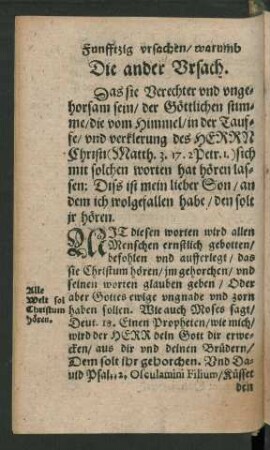 Funfftzig vrsachen/ warumb
Die ander Vrsach.
Das sie Verechter vnd vnge-
horsam sein/ der Göttlichen stim-
me/ die vom Himmel/ in der Tauf-
fe/ vnd verklerung des HERRN
Christi (Matth. 3. 17. 2 Petr. 1.) sich
mit solchen worten hat hören las-
sen: Diss ist mein lieber Son/ an
dem ich wolgefallen habe/ den solt
jr hören.
MIT diesen worten wird allen
Menschen ernstlich gebotten/
befohlen vnd aufferlegt/ das
sie Christum hören/ jm gehorchen/ vnd
seinen worten glauben geben/ Oder
aber Gottes ewige vngnade vnd zorn
haben sollen. Wie auch Moses sagt/
Deut. 18. Einen Propheten/ wie mich/
wird der HERR dein Gott dir erwe-
cken/ aus dir vnd deinen Brüdern/
Dem solt ihr gehorchen. Vnd Da-
uid Psal. 2. Osculamini Filium/ Küsset
den
Alle
Welt sol
Christum
hören.